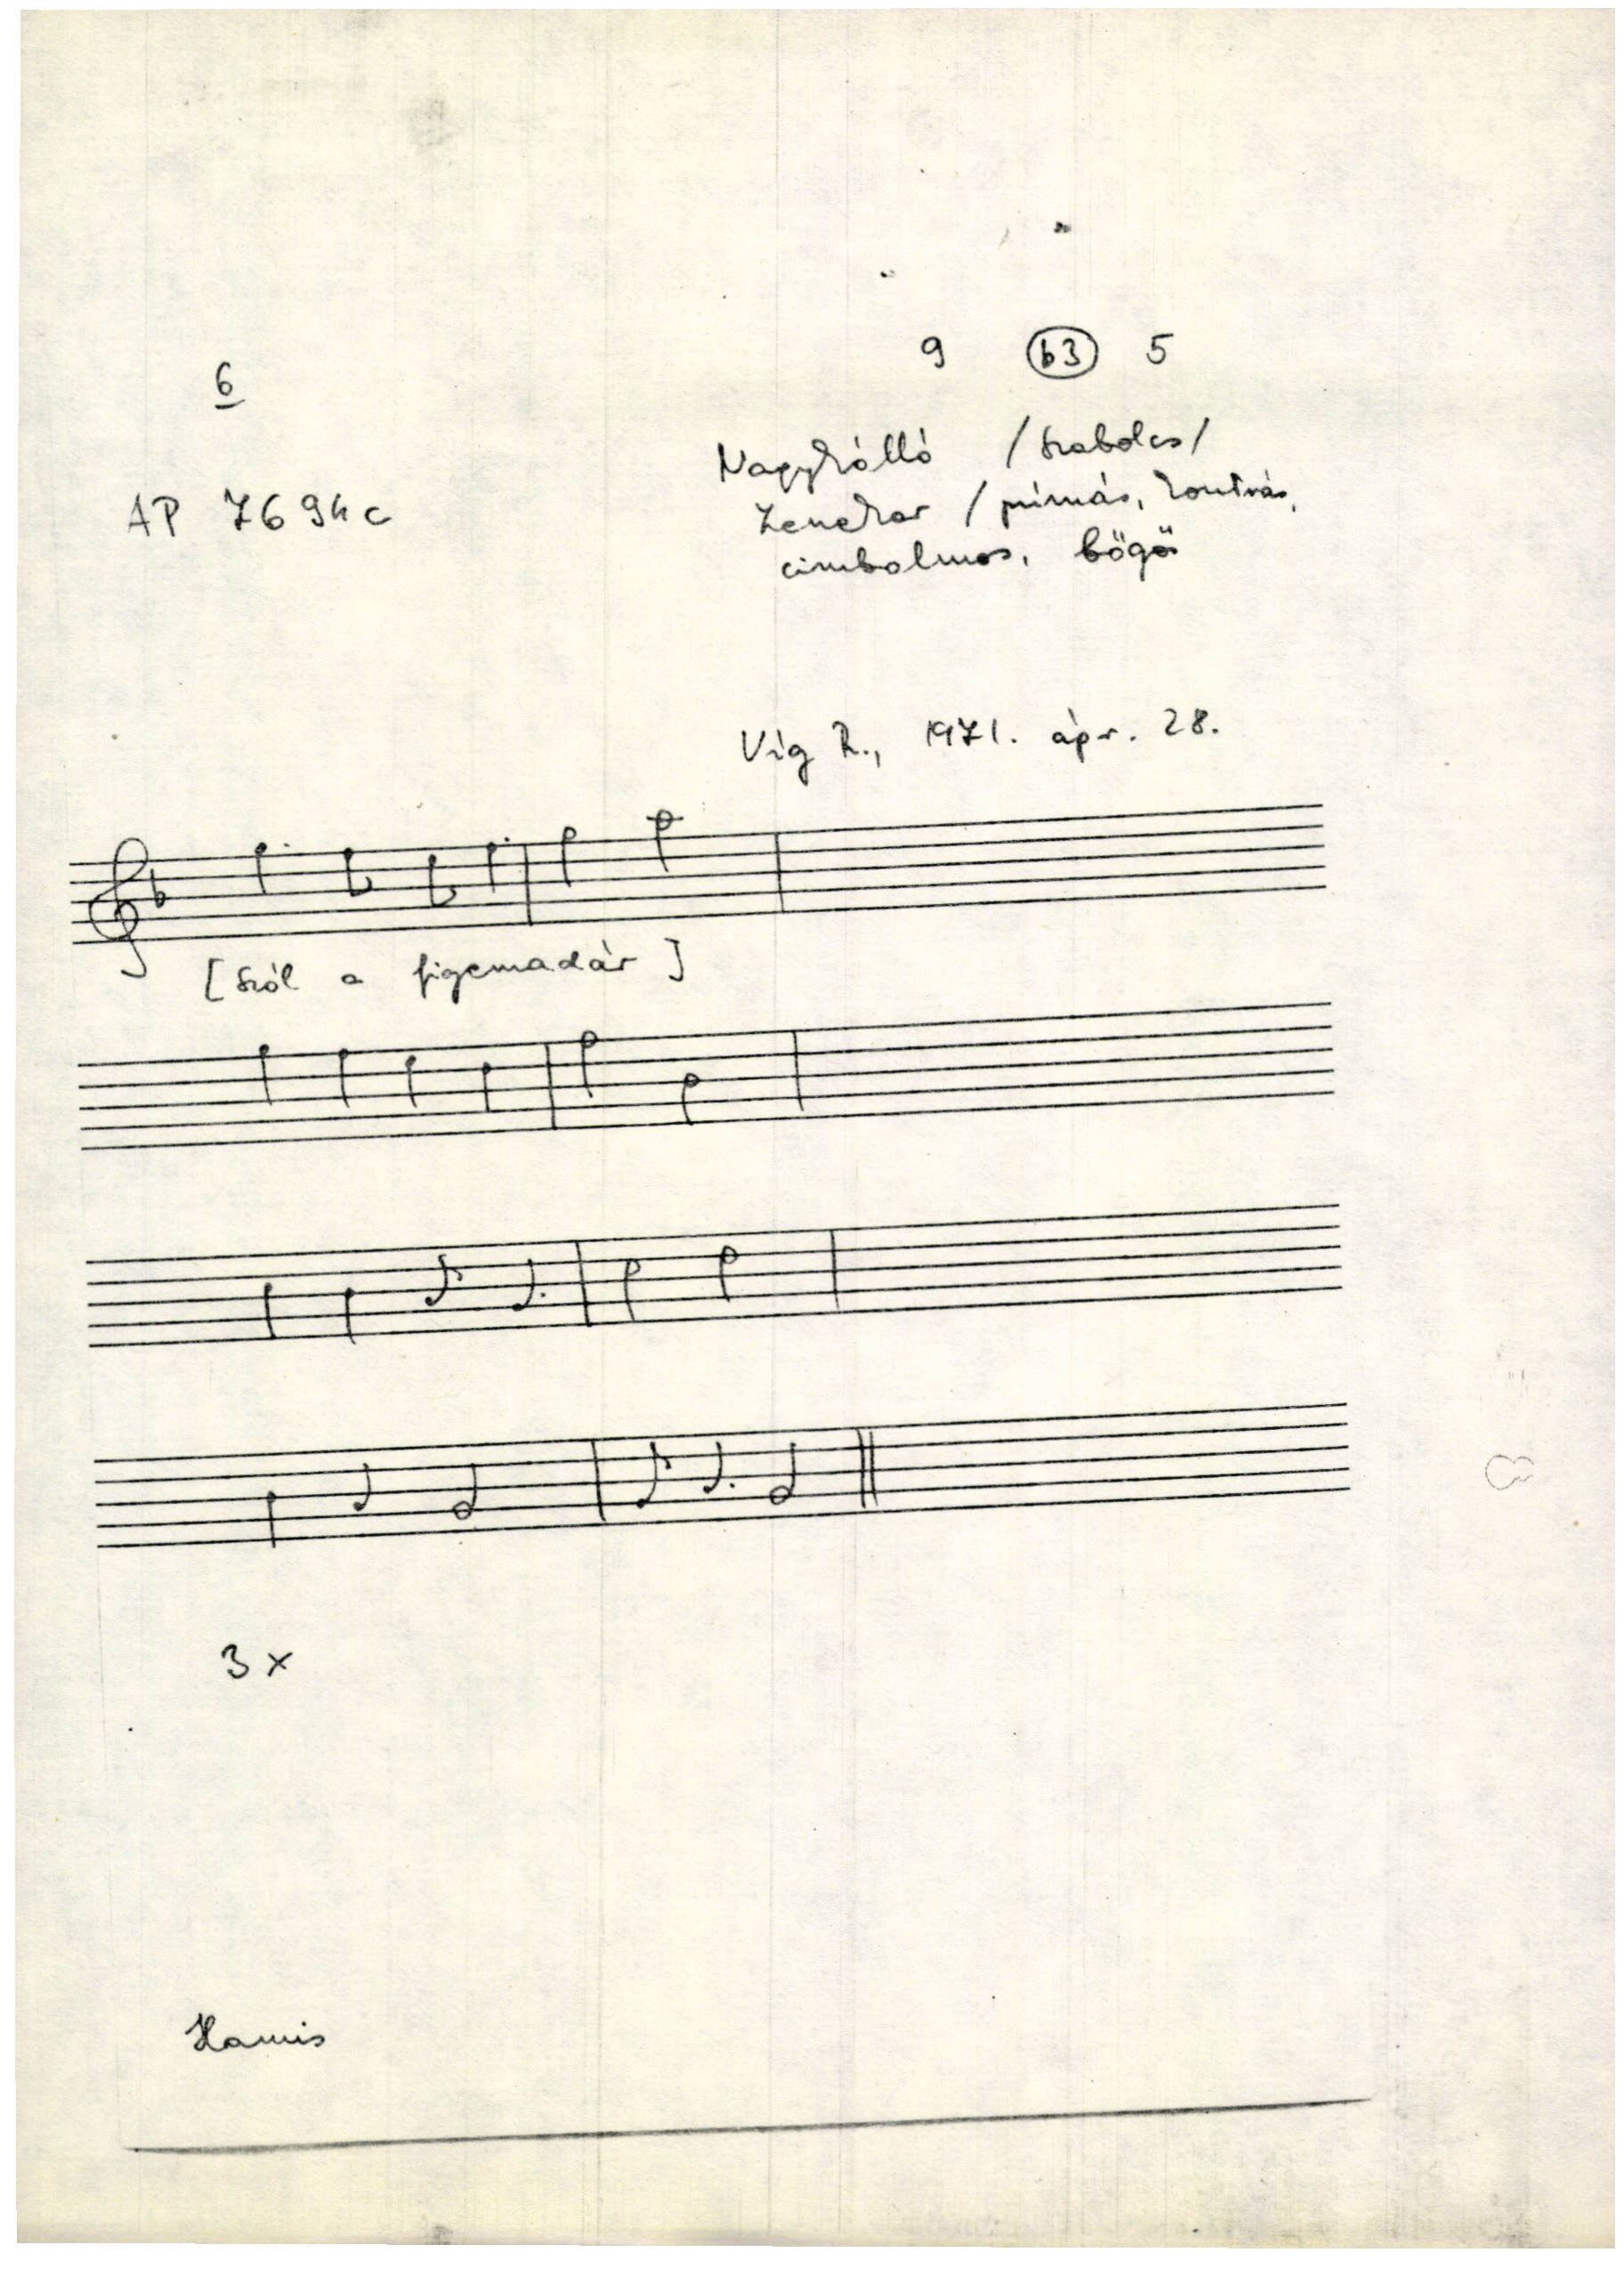 9 b3 5
6
Nagykálló /Szabolcs/
AP 7694c
Zenekar /prímás, kontrás,
cimbalmos, bőgős
Víg R., 1971. ápr. 28.
[Szól a figemadár]
3x
Hamis